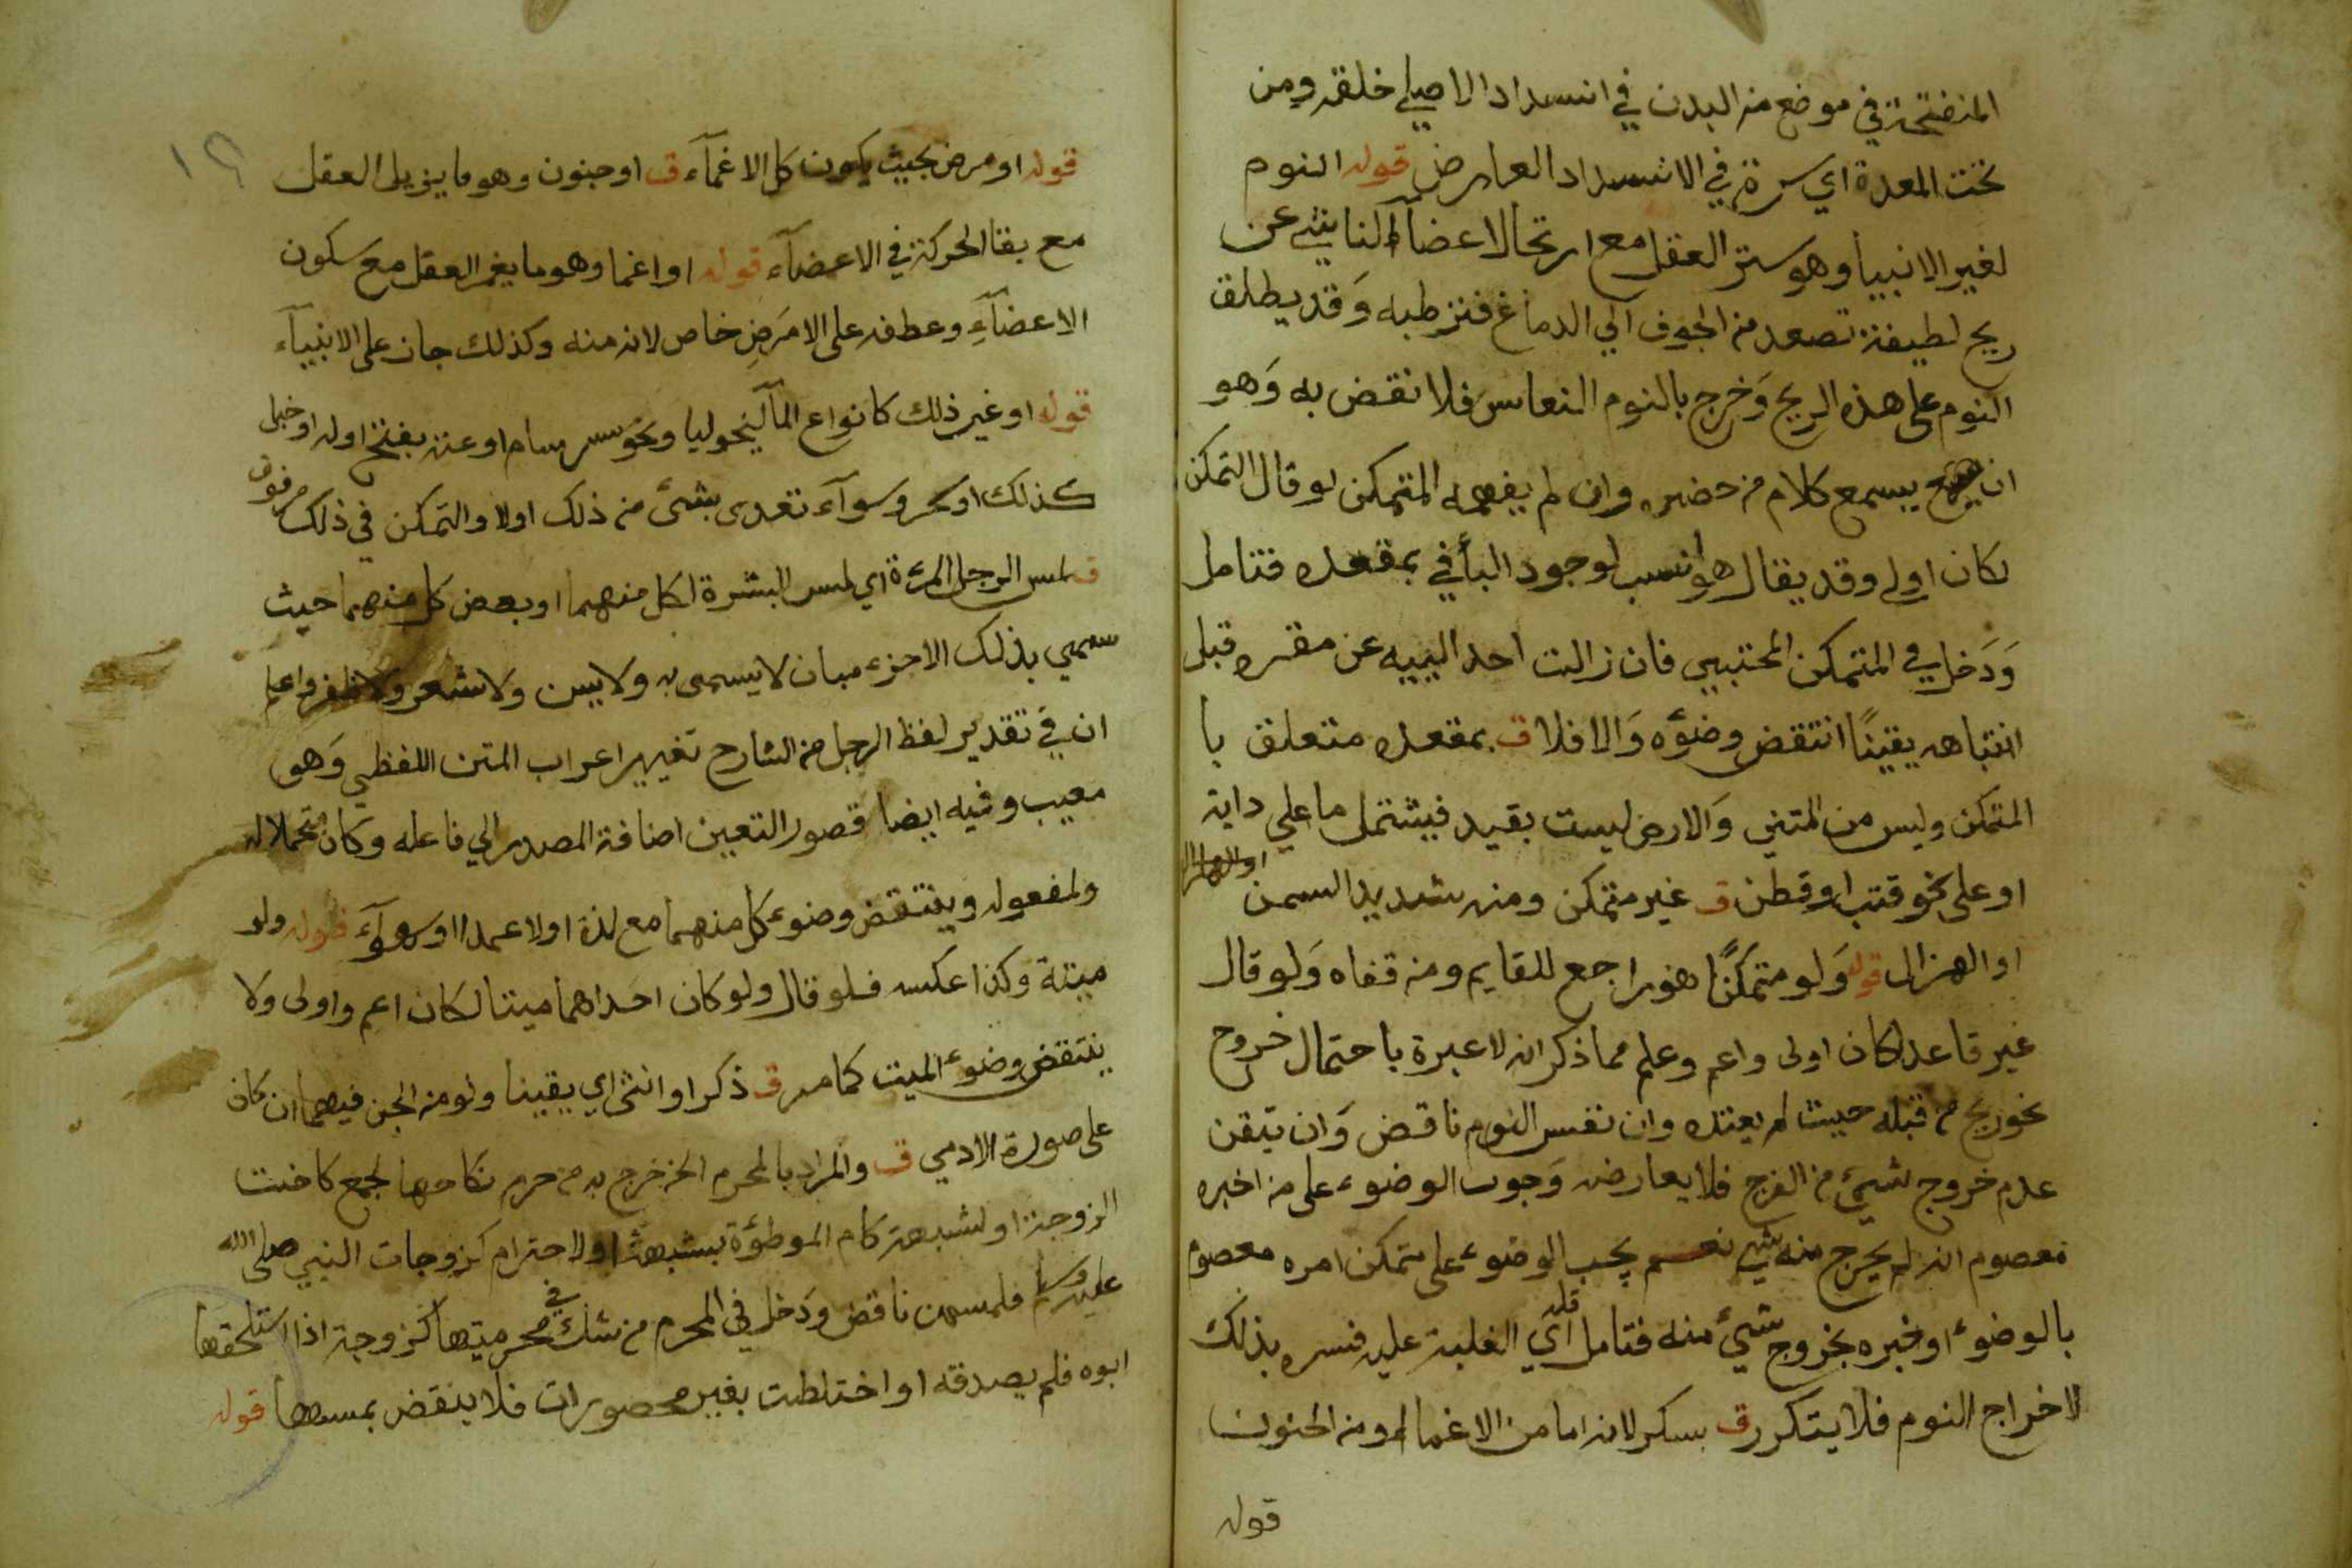 المنفتحة في موضع من البدن في انسداد الاصلي خلقة ومن
تحت المعدة اي سرة في الانسداد العارض قوله النوم
لغير الانبيا وهو ستر العقل مع ارتخا الاعضآء الناشي عن
ريح لطيفة تصعد من الجوف الي الدماغ فترطبه وَقد يطلق
النوم على هذه الريح وَخرج بالنوم النعاس فلا نقض به وَهو
ان يسمع كلام من حضره وان لم يفهمه المتمكن لو قال التمكن
لكان اولى وقد يقال هو انسب لوجود البأ في بمقعده فتامل
وَدَخل في المتمكن المحتبي فان زالت احد اليتيه عن مقره قبل
انتباهه يقينًا انتقض وضوءه وَالا فلا ق بمقعده متعلق با
المتمكن وليس من المتن وَالارض ليست بقيد فيشتمل ما على دابة
او على نحو قتب او قطن ق غير متمكن ومنه شديد السمن
او الهزال قوله وَلو متمكنًا هو راجع للقايم ومن قفاه وَلو قال
غير قاعد لكان اولى واعم وعلم مما ذكر انه لا عبرة باحتمال خروج
نحو ريح من قبله حيث لم يعتده وان نفس النوم ناقض وَان تيقن
عدم خروج شيئ من الفرج فلا يعارضه وَجوب الوضوء على من اخبره
معصوم انه لم يخرج منه شي نعم يجب الوضوء على متمكن امره معصوم
بالوضوء او خبره بخروج شيئ منه فتامل قوله اي الغلبة عليه فسره بذلك
لاخراج النوم فلا يتكرر ق بسكر لانه اما من الاغمأ او من الجنون
قوله
١٢
قوله او مرض بحيث يكون كالاغمآء ق او جنون وهو ما يزيل العقل
مع بقا الحركة في الاعضآء قوله او اغما وهو ما يغمر العقل مع سكون
الاعضآءِ وعطفه على الامرَضِ خاص لانه منه وكذلك جاز على الانبيآء
قوله او غير ذلك كانواع المآلنيخوليا ونحو سرسام او عته بفتح اوله او خبل
كذلك او سحر وسوآء تعدى بشئ من ذلك اولا والتمكن في ذلك
ق لمس الرجل المرءة اي لمس البشرة لكل منهما او بعض كل منهما حيث
سمي بذلك الاجزء مبان لا يسمى به ولا بسن وَلا شعر وَلا ظفر واعلم
ان في تقدير لفظ الرجل من الشارح تغيير اعراب المتن اللفظي وَهو
معيب وفيه ايضا قصور التعين اضافة المصدر الي فاعله وكان محتملا له
ولمفعوله وينتقض وضوء كل منهما مع لذة اولا عمدا او سهوآءَ قوله ولو
ميتة وكذا عكسه فلو قال ولو كان احَداهما ميتا لكان اعم واولى وَلا
ينتقض وضوء الميت كما مر ق ذكر او انثى اي يقينا ولو من الجن فيهما ان كان
على صورة الادمي ق والمراد بالمحرم الخ خرج به من حرم نكاحها لجمع كاخت
الزوجة او لشبهة كام الموطؤة بشبهة او لاحترام كزوجات النبي صلى الله
عليه وسلم فلمسهن ناقض وَدخل في المحرم من شك في محرميتها كزوجة اذا استلحقها
ابوه فلم يصدقه او اختلطت بغير محصورات فلا ينقض بمسها قوله